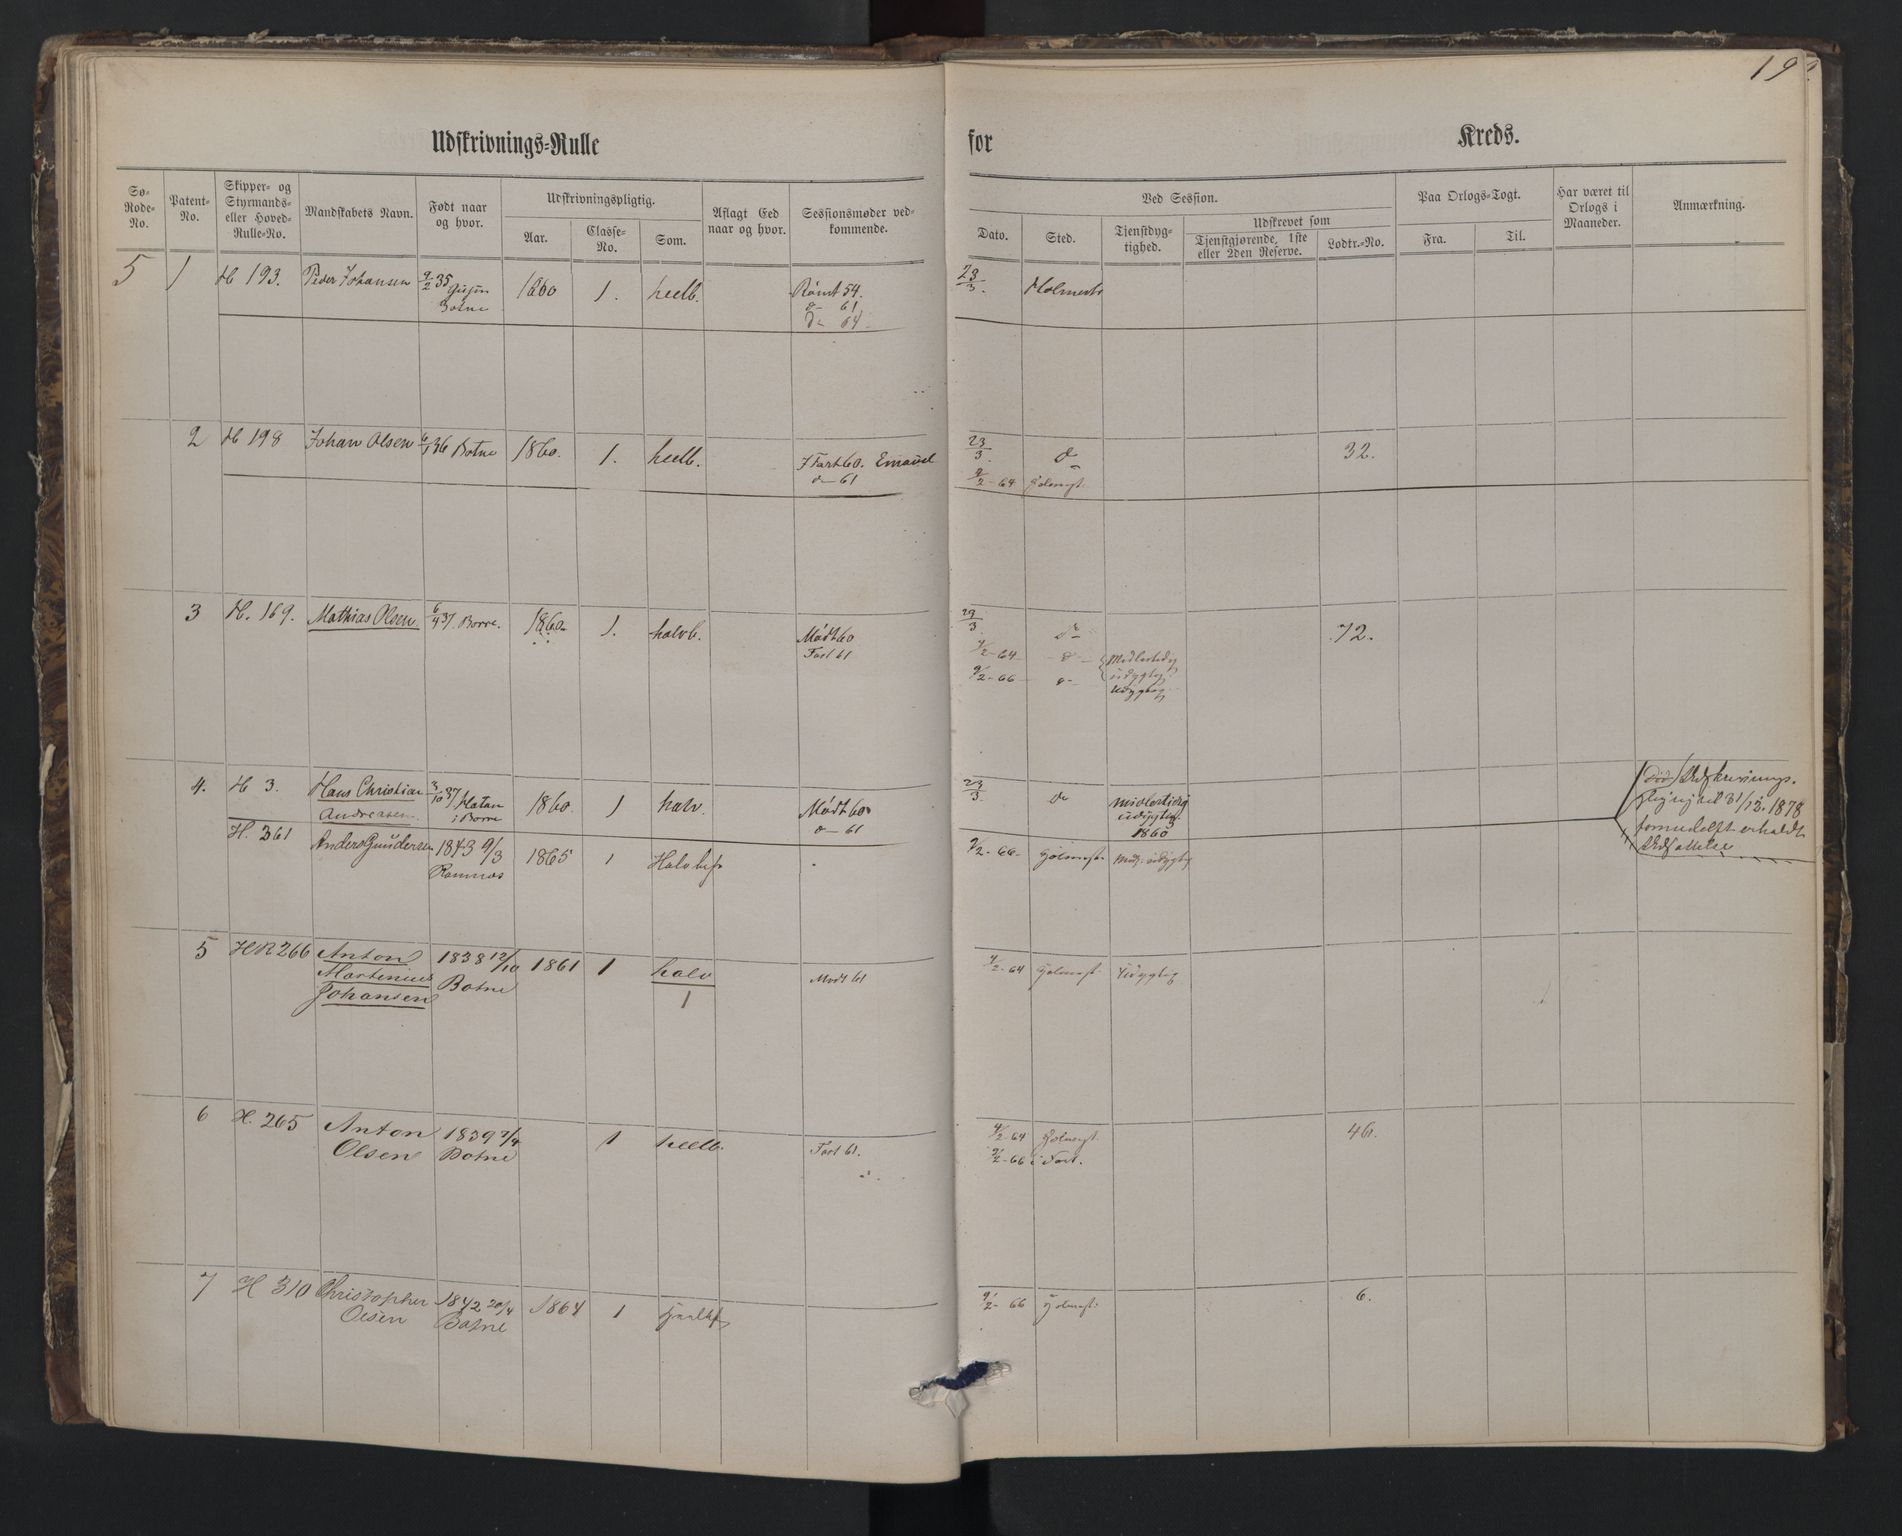 19
Udskrivnings-Rulle for Kreds.
Sø-Rode-No. Patent-No. Skipper- og Styrmands- eller Hoved-Rulle-No. Mandskabets Navn. Født naar og hvor. Udskrivningspligtig. Aar. Classe-No. Som. Aflagt Eed naar og hvor. Sessionsmøder vedkommende.
Ved Session. Dato. Sted. Tjenstdygtighed. Udskrevet som Tjenstgjørende, 1ste eller 2den Reserve. Lodtr.-No. Paa Orlogs-Togt. Fra. Til. Har været til Orlogs i Maaneder. Anmærkning.
5 1 H 193. Peder Johansen 9/2 35 1860 1. heelb. Rømt 54. 23/3. Holmestr
Botne d- 61
d- 64
2 H 198 Johan Olsen 6/1 36 Botne 1860. 1. heelb. I Fart 60. 23/3. d 32.
d- 61 9/2-64 Holmest.
3 H. 169. Mathias Olsen 6/4 37. Borre. 1860. 1. halvb. Mødt 60 23/3. do 72.
Fart 61 9/2-64 d- Midlertidig
udygtig
9/2-66 d- Udygtig
4. H 3. Hans Christian 3/10 37 1860. 1 halv. Mødt 60 23/3. do midlertidig
Andreasen. i Borre d- 61 udygtig
1860
H. 261 Anders Gundersen 1843 9/3 1865 1 Halvbef 9/2-66- Holmest. Midl. udygtig
Ramnæs
til 31/12. 1878
5 HR 266 Anton 1838 12/10 1861 1 halv Mødt 61 9/2-64 Holmest. Udygtig
Martinius Botne 1
Johansen
6 H. 265 Anton 1839 7/4 1 heelb. Fart 61. 9/2-64 Holmest. 46.
Olsen Botne 9/2-66 i Fart.
7 H 310 Christopher 1842 20/4 1864 1 9/2-66 Holmest. 6.
Olsen Botne